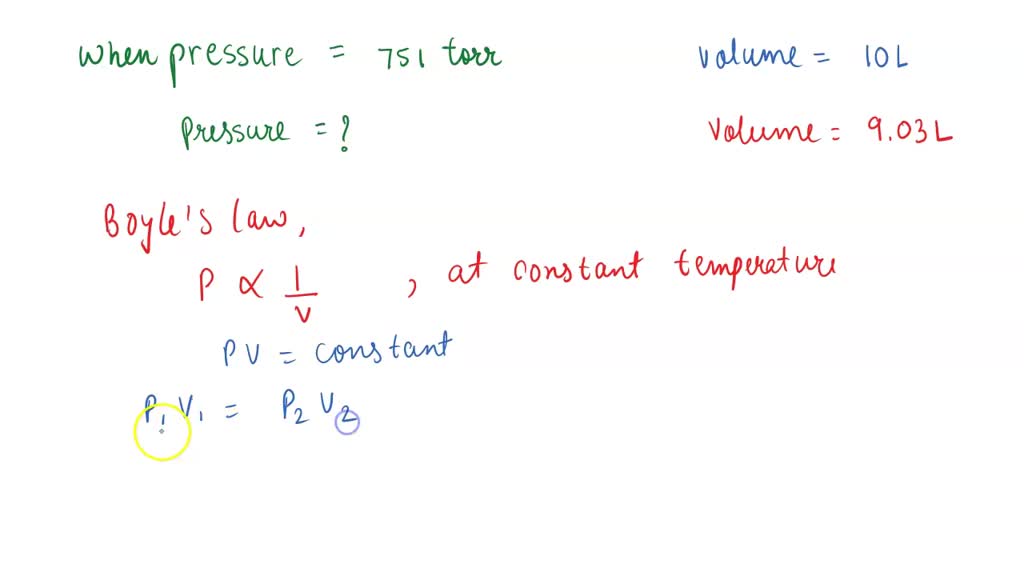 when pressure = 751 torr volume = 10L
pressure = ? volume = 9.03L
Boyle's law,
P ∝ 1/V , at constant temperature
PV = constant
P₁V₁ = P₂V₂